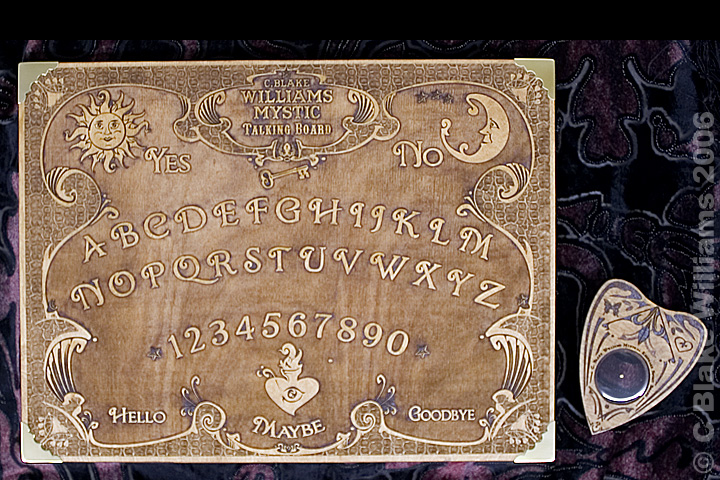 C. BLAKE
WILLIAMS
MYSTIC
TALKING BOARD
YES
NO
ABCDEFGHIJKLM
NOPQRSTUVWXYZ
1234567890
HELLO
MAYBE
GOODBYE
© C.Blake Williams 2006